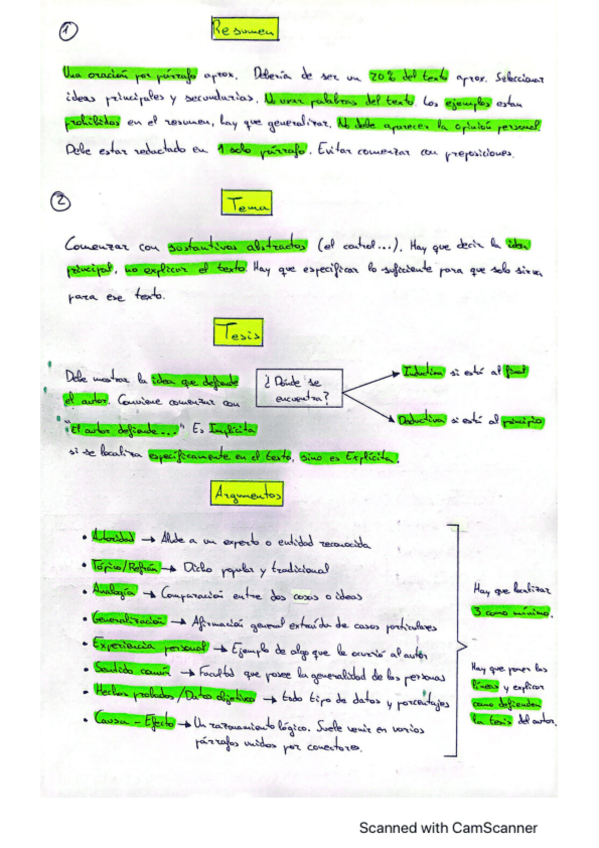 1
Resumen
Una oración por párrafo aprox. Debería de ser un 20% del texto aprox. Seleccionar
ideas principales y secundarias. No usar palabras del texto. Los ejemplos estan
prohibidos en el resumen, hay que generalizar. No debe aparecer la opinión personal.
Debe estar redactado en 1 solo párrafo. Evitar comenzar con preposiciones.
2
Tema
Comenzar con sustantivos abstractos (el control...). Hay que decir la idea
principal, no explicar el texto. Hay que especificar lo suficiente para que solo sirva
para ese texto.
Tesis
Debe mostrar la idea que defiende
el autor. Conviene comenzar con
"El autor defiende..." Es Implícita
si se localiza específicamente en el texto, sino es Explícita.
¿Dónde se
encuentra?
Inductiva si está al final
Deductiva si está al principio
Argumentos
• Autoridad → Alude a un experto o entidad reconocida
• Tópico/Refrán → Dicho popular y tradicional
• Analogía → Comparación entre dos cosas o ideas
• Generalización → Afirmación general extraída de casos particulares
• Experiencia personal → Ejemplo de algo que le ocurrió al autor
• Sentido común → Facultad que posee la generalidad de las personas
• Hechos probados/Datos objetivos → todo tipo de datos y porcentajes
• Causa - Efecto → Un razonamiento lógico. Suele venir en varios
párrafos unidos por conectores.
Hay que localizar
3 como mínimo.
Hay que poner las
líneas y explicar
como defienden
la tesis del autor.
Scanned with CamScanner